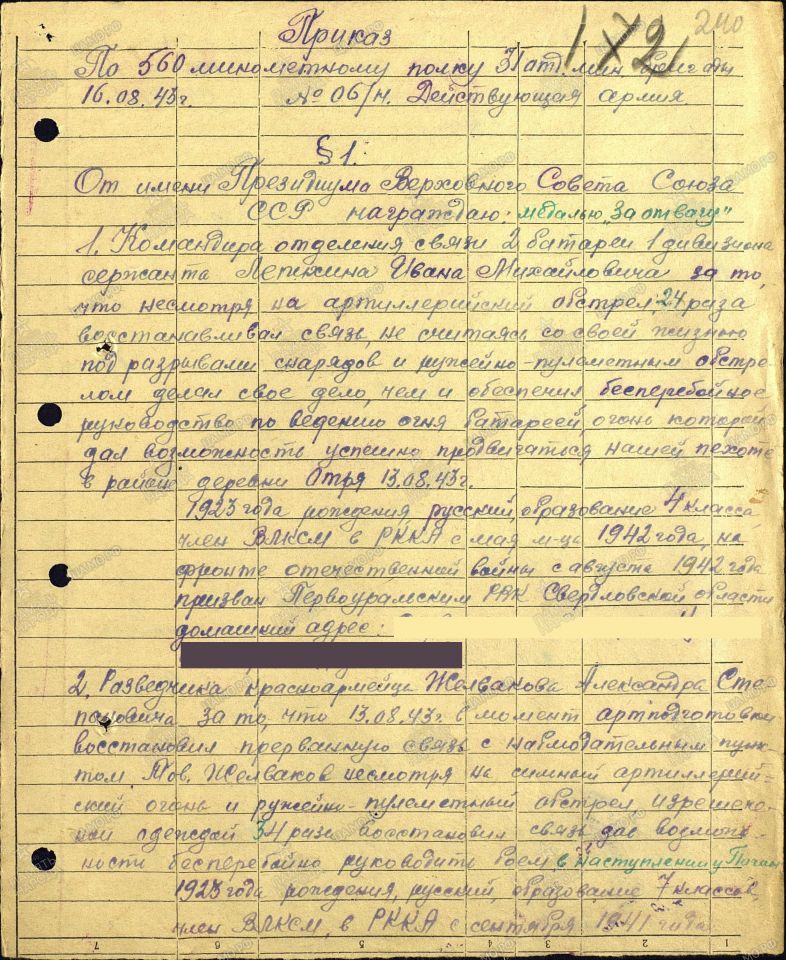 240
172
Приказ
По 560 минометному полку 31 отд. мин бригады
16.08.43г. № 06/н. Действующая армия.
§ 1.
От имени Президиума Верховного Совета Союза
ССР награждаю: медалью „За отвагу"
1. Командира отделения связи 2 батареи 1 дивизиона
сержанта Лепихина Ивана Михайловича за то,
что несмотря на артиллерийский обстрел, 24 раза
восстанавливал связь, не считаясь со своей жизнью
под разрывами снарядов и ружейно-пулеметным обстре-
лом делал свое дело, чем и обеспечил бесперебойное
руководство по ведению огня батареей, огонь которой
дал возможность успешно продвигаться нашей пехоте
в районе деревни 13.08.43г.
1923 года рождения, русский, образование 4 класса,
член ВЛКСМ в РККА с мая м-ца 1942 года, на
фронте отечественной войны с августа 1942 года
призван Первоуральским РВК Свердловской области
домашний адрес:
2. Разведчика красноармейца Желвакова Александра Сте-
пановича за то, что 13.08.43г. в момент артподготовки
восстановил прерванную связь с наблюдательным пунк-
том Тов. Желваков несмотря на сильный артиллерий-
ский огонь и ружейно-пулеметный обстрел изрешечен-
ной одеждой 34 раза восстановил связь дав возмож-
ности бесперебойно руководить боем в наступлении у
1923 года рождения, русский, образование 7 классов,
член ВЛКСМ, в РККА с сентября 1941 года
7 6 5 4 3 2 1